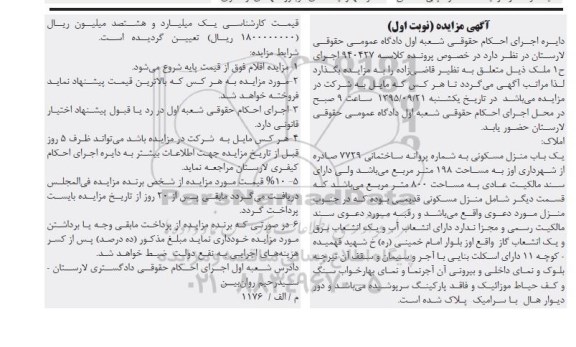 آگهی مزایده (نوبت اول)
دایره اجرای احکام حقوقی شعبه اول دادگاه عمومی حقوقی
لارستان در نظر دارد در خصوص پرونده کلاسه ۹۴۰۴۲۷ اجرای
ح۱ ملک ذیل متعلق به نظیر قاضی‌زاده را به مزایده بگذارد
لذا مراتب آگهی می‌گردد تا هر کس که مایل به شرکت در
مزایده می‌باشد در تاریخ یکشنبه ۱۳۹۵/۰۹/۲۱ ساعت ۹ صبح
در محل اجرای احکام حقوقی شعبه اول دادگاه عمومی حقوقی
لارستان حضور یابد.
املاک:
یک باب منزل مسکونی به شماره پروانه ساختمانی ۷۷۲۹ صادره
از شهرداری اوز به مساحت ۱۹۸ متر مربع می‌باشد ولی دارای
سند مالکیت عادی به مساحت ۸۰۰ متر مربع می‌باشد که
قسمت دیگر شامل منزل مسکونی قدیمی بوده که در جنوب
منزل مورد دعوی واقع می‌باشد و رقبه مورد دعوی سند
مالکیت رسمی و مجزا ندارد دارای انشعاب آب و یک انشعاب برق
و یک انشعاب گاز واقع اوز بلوار امام خمینی (ره) خ شهید فهمیده
- کوچه ۱۱ دارای اسکلت بنایی با آجر و سیمان و سقف آن تیرچه
بلوک و نمای داخلی و بیرونی آن آجرنما و نمای بهارخواب سنگ
و کف حیاط موزائیک و فاقد پارکینگ سرپوشیده می‌باشد و دور
دیوار هال با سرامیک پلاک شده است.
قیمت کارشناسی یک میلیارد و هشتصد میلیون ریال
(۱۸۰۰۰۰۰۰۰۰ ریال) تعیین گردیده است.
شرایط مزایده:
۱- مزایده اقلام فوق از قیمت پایه شروع می‌شود.
۲- مورد مزایده به هر کس که بالاترین قیمت پیشنهاد نماید
فروخته خواهد شد.
۳- اجرای احکام حقوقی شعبه اول در رد یا قبول پیشنهاد اختیار
قانونی دارد.
۴- هر کس مایل به شرکت در مزایده باشد می‌تواند ظرف ۵ روز
قبل از تاریخ مزایده جهت اطلاعات بیشتر به دایره اجرای احکام
کیفری لارستان مراجعه نماید.
۵- ۱۰% قیمت مورد مزایده از شخص برنده مزایده فی‌المجلس
دریافت می‌گردد مابقی پس از ۲۰ روز از تاریخ مزایده بایست
پرداخت گردد.
۶- در صورتی که برنده مزایده از پرداخت مابقی وجه یا برداشتن
مورد مزایده خودداری نماید مبلغ مذکور (ده درصد) پس از کسر
هزینه‌های اجرایی به نفع دولت ضبط خواهد شد.
دادرس شعبه اول اجرای احکام حقوقی دادگستری لارستان -
سیدرحیم روان‌بین
م / الف / ۱۱۷۶
۰۲۱-۸۸۳۴۹۶۷۰